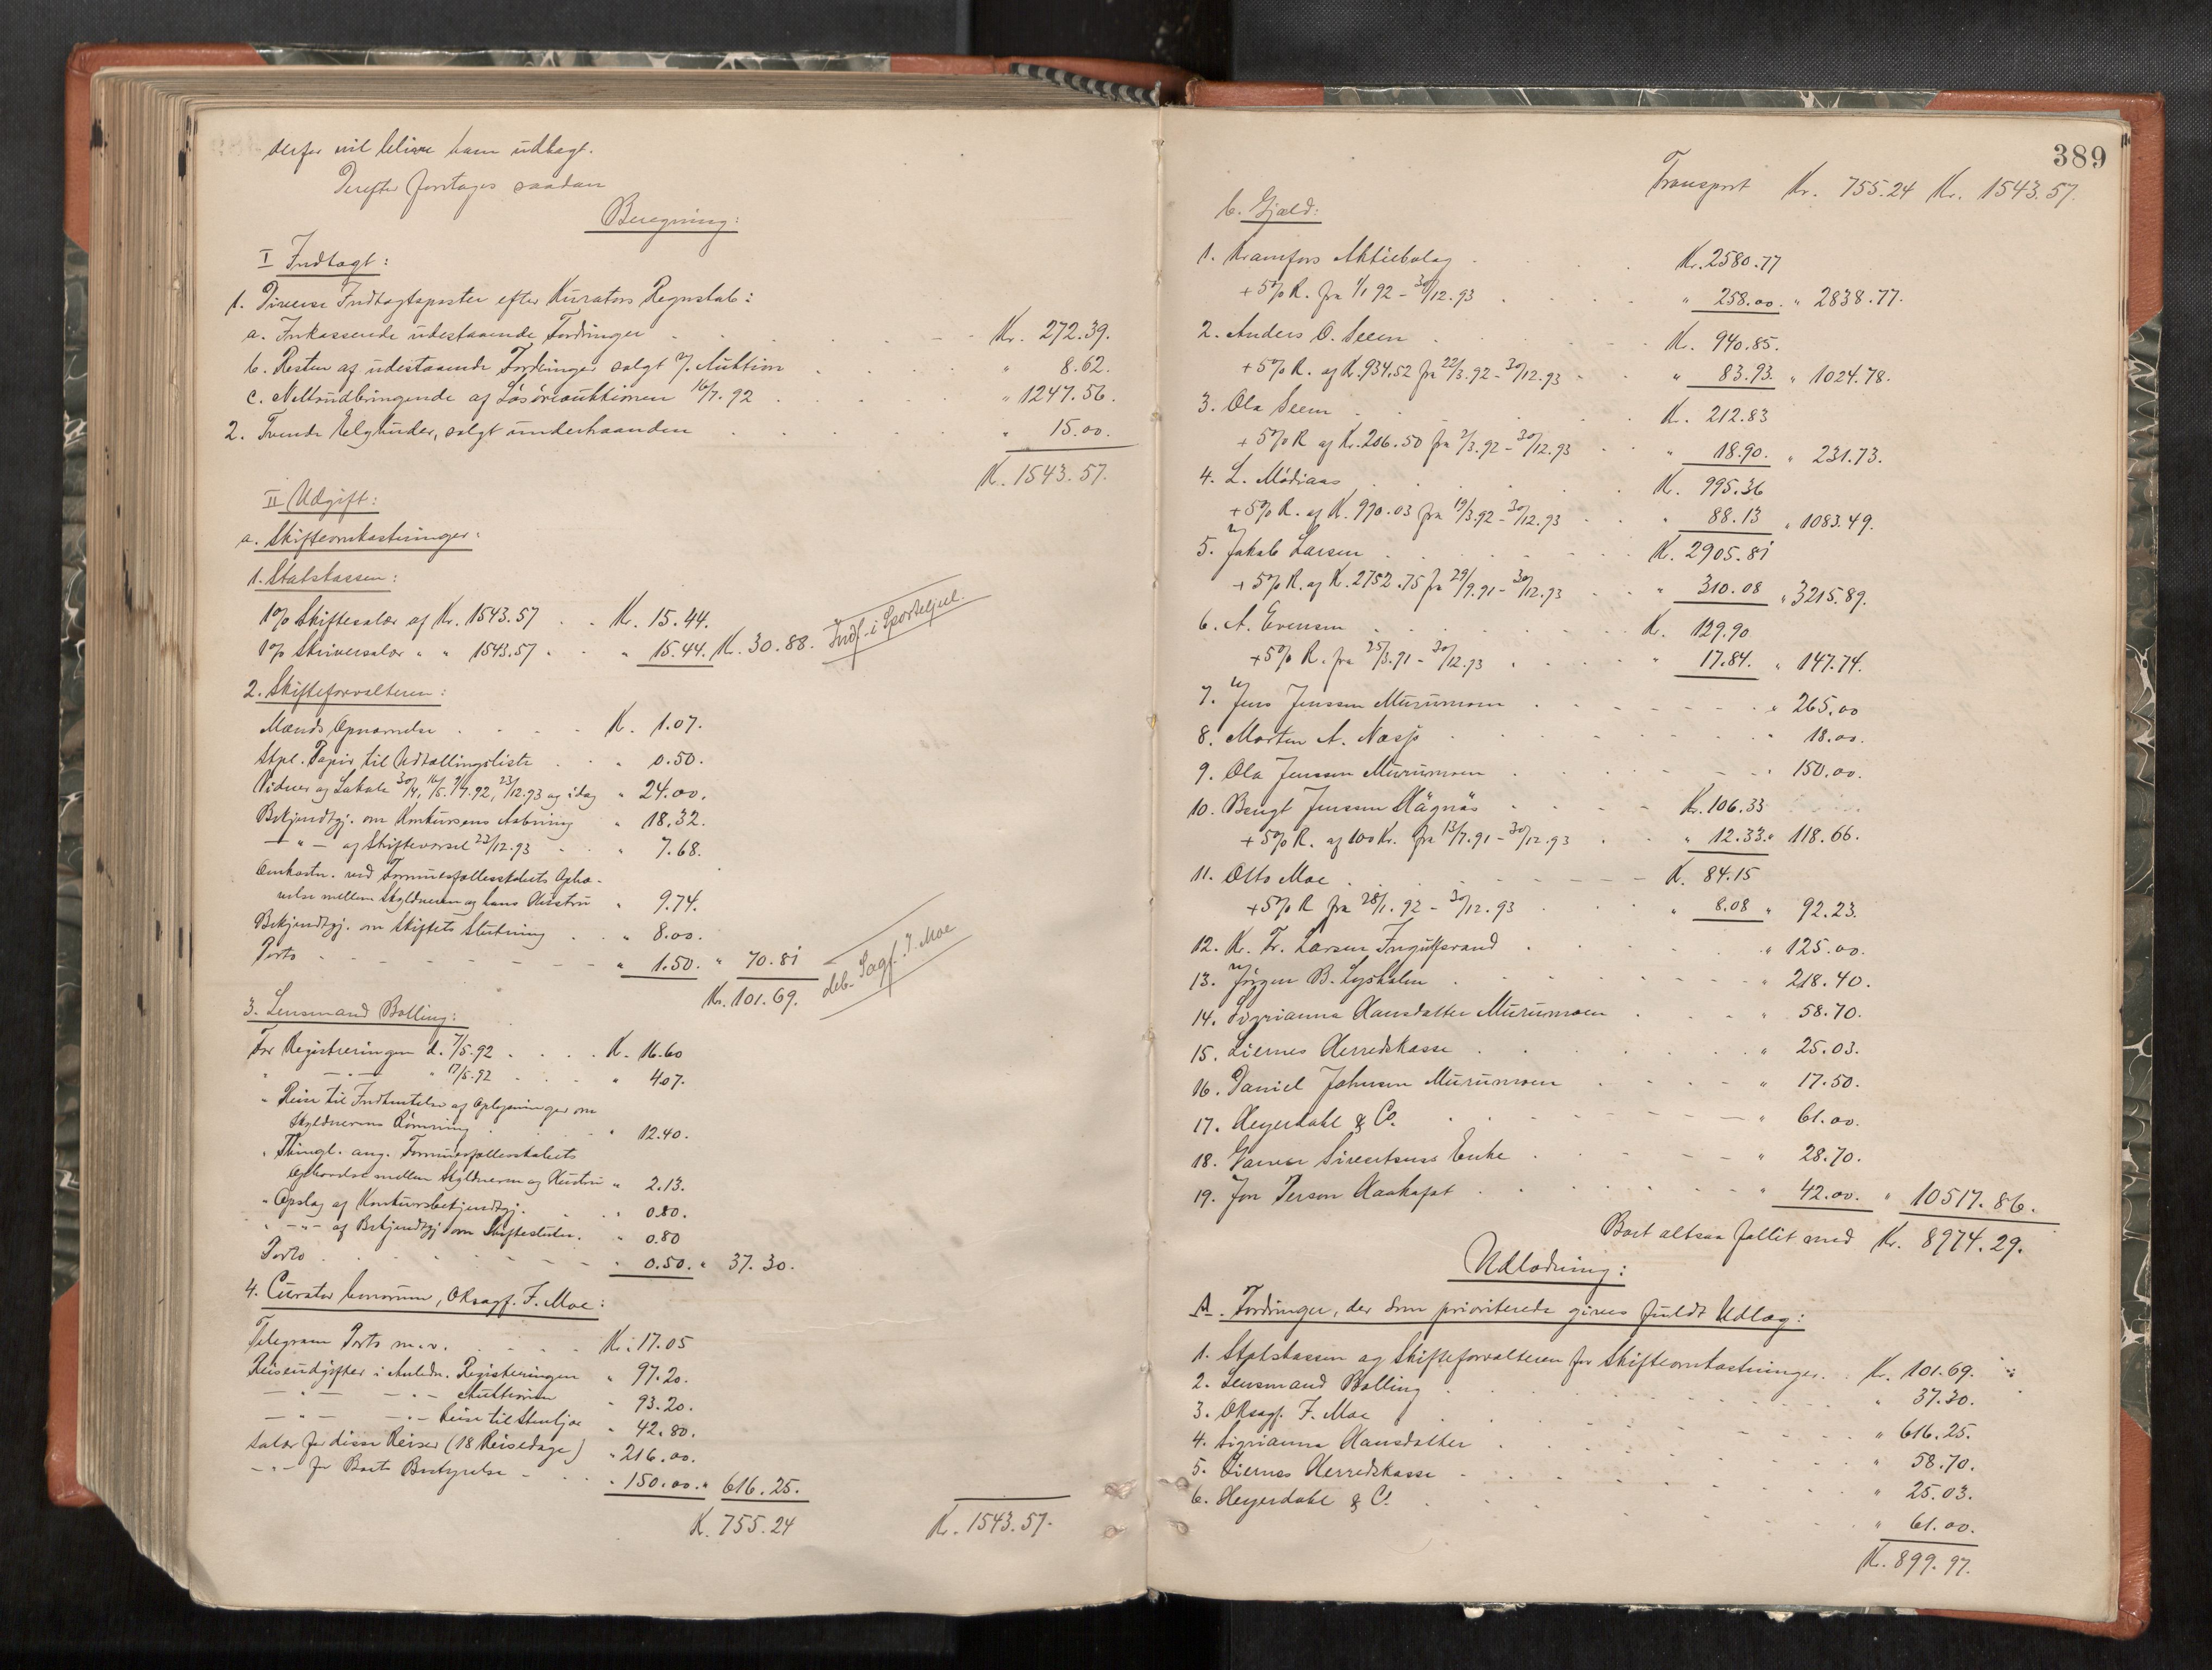 derfor vil blive ham udlagt.
Derefter foretages saadan
Beregning:
I Indtægt:
1. Diverse Indtægtsposter efter Kurators Regnskab:
a. Inkasserede udestaaende Fordringer . . . . . Kr. 272.39.
b. Resten af udestaaende Fordringer solgt v. Auktion . . . . " 8.62.
c. Nettoudbringende af Løsøreauktionen 16/7.92 . . . . " 1247.56.
2. Tvende Elghuder, solgt underhaanden . . . . " 15.00.
K. 1543.57.
II Udgift:
a. Skifteomkostninger:
1. Statskassen:
1% Skiftesalær af Kr. 1543.57 . . Kr. 15.44.
1% Skriversalær " " 1543.57 . . " 15.44. Kr. 30.88. Indf. i Sporteljul.
2. Skifteforvalteren:
Mænds Opnævnelse . . . . K. 1.07.
Stpl. Papir til Udtællingsliste . . " 0.50.
Vidner og Lokale 30/4, 16/5, 9/7.92, 23/12.93 og idag " 24.00.
Bekjendtgj. om Konkursens Aabning " 18.32.
— " — af Skiftevarsel 23/12.93 . . " 7.68.
Omkostn. ved Formuesfællesskabets Ophæ-
velse mellem Skyldneren og hans Hustru " 9.74.
Bekjendtgj. om Skiftets Slutning . . " 8.00.
Porto - - - - - " 1.50. " 70.81 deb. Sagf. F. Moe
Kr. 101.69.
3. Lensmand Bolling:
For Registreringen d. 7/5.92 . . . . K. 16.60
" — " — " 17/5.92 . . . " 4.07.
" Reise til Indhentelse af Oplysninger om
Skyldnerens Rømning . . . " 12.40.
" Thingl. ang. Formuesfællesskabets
Ophævelse mellem Skyldneren og Hustru " 2.13.
" Opslag af Konkursbekjendtgj. . . " 0.80.
" — " — af Bekjendtgj. om Skiftesluttn. " 0.80
Porto . . . . " 0.50. " 37.30.
4. Curator bonorum, ORsagf. F. Moe:
Telegram Porto m.v. . . . . Kr. 17.05
Reiseudgifter i Anledn. Registreringen " 97.20.
— " — — " — Auktionen " 93.20.
— " — — " — Reise til Stenkjær " 42.80.
Salær for disse Reiser (18 Reisedage) " 216.00.
— " — for Boets Bestyrelse - . . " 150.00. " 616.25.
K. 755.24 Kr. 1543.57.
389
Transport Kr. 755.24 Kr. 1543.57.
b. Gjæld:
1. Kramfors Aktiebolag . . . . Kr. 2580.77
+ 5% R. fra 1/1 92 - 30/12.93 . . . " 258.00. " 2838.77.
2. Anders O. Seem . . . . K. 940.85.
+ 5% R. af K. 934.52 fra 22/3.92 - 30/12.93 . . " 83.93. " 1024.78.
3. Ola Seem . . . . K. 212.83
+ 5% R af Kr. 206.50 fra 2/3.92 - 30/12.93 . . " 18.90. " 231.73.
4. L. Mødiaas . . . . K. 995.36
+ 5% R. af K. 990.03 fra 19/3.92 - 30/12.93 . . " 88.13 " 1083.49.
5. Jakob Larsen . . . . K. 2905.81
+ 5% R. af K. 2752.75 fra 29/9.91 - 30/12.93 . . " 310.08 " 3215.89.
6. A. Evensen . . . . Kr. 129.90
+ 5% R. fra 25/3.91 - 30/12.93 . . . " 17.84. " 147.74.
7. Jens Jenssen Murumoen . . . . " 265.00
8. Morten A. Næsje . . . . " 18.00.
9. Ola Jenssen Murumoen . . . . " 150.00.
10. Bengt Jenssen Hägnäs . . . . Kr. 106.33
+ 5% R. af 100 Kr. fra 13/7.91 - 30/12.93 . . " 12.33. " 118.66.
11. Otto Moe . . . . K. 84.15
+ 5% R fra 28/1.92 - 30/12.93 . . " 8.08 " 92.23.
12. K. Fr. Larsen Ingulfsvand . . . . " 125.00.
13. Jørgen B. Lysholm . . . . " 218.40.
14. Sigrianna Hansdatter Murumoen . . . " 58.70.
15. Liernes Herredskasse . . . . " 25.03.
16. Daniel Johnsen Murumoen . . . . " 17.50.
17. Heyerdahl & Co. . . . . " 61.00.
18. Sivertsens Enke . . . . " 28.70.
19. Jon Person . . . . " 42.00. " 10517.86.
Boet altsaa fallit med Kr. 8974.29.
Udlodning:
A. Fordringer, der som prioriterede gives fuldt Udlæg:
1. Statskassen og Skifteforvalteren for Skifteomkostninger. . Kr. 101.69.
2. Lensmand Bolling . . . . " 37.30.
3. ORsagf. F. Moe . . . . " 616.25.
4. Sigrianna Hansdatter . . . . " 58.70.
5. Liernes Herredskasse . . . . " 25.03.
6. Heyerdahl & Co. . . . . " 61.00.
K. 899.97.